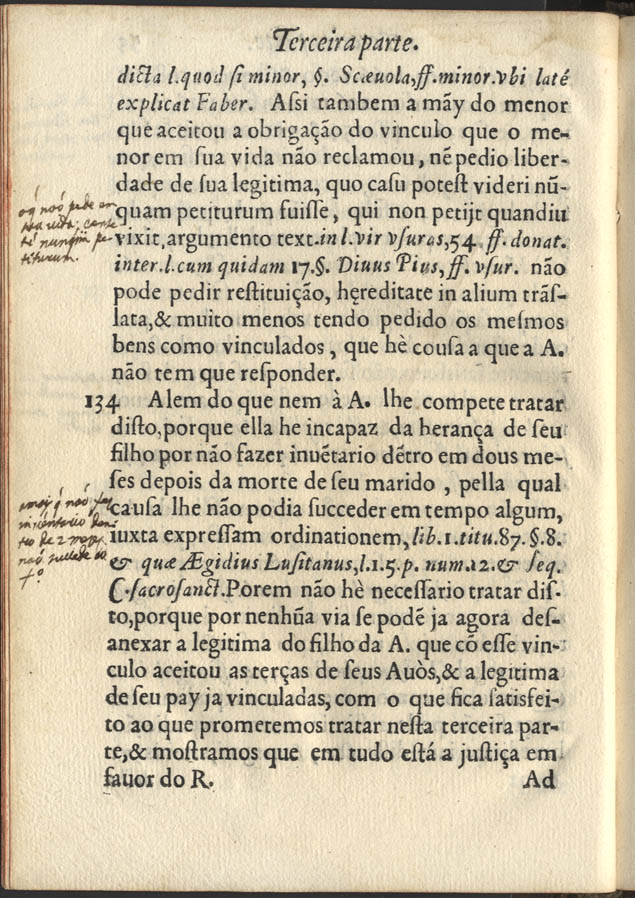 Terceira parte.
dicta l. quod ſi minor, §. Scæuola, ff. minor. vbi laté
explicat Faber. Aſsi tambem a mãy do menor
que aceitou a obrigação do vinculo que o me-
nor em ſua vida não reclamou, nẽ pedio liber-
dade de ſua legitima, quo caſu poteſt videri nũ-
quam petiturum fuiſſe, qui non petijt quandiu
vixit, argumento text. in l. vir vſuras, 54. ff. donat.
inter. l. cum quidam 17. §. Diuus Pius, ff. vſur. não
pode pedir reſtituição, hęreditate in alium trãſ-
lata, & muito menos tendo pedido os meſmos
bens como vinculados, que hè couſa a que a A.
não tem que reſponder.
134 Alem do que nem à A. lhe compete tratar
diſto, porque ella he incapaz da herança de ſeu
filho por não fazer inuẽtario dẽtro em dous me-
ſes depois da morte de ſeu marido, pella qual
cauſa lhe não podia ſucceder em tempo algum,
iuxta expreſſam ordinationem, lib. 1. titu. 87. §. 8.
& quæ Ægidius Luſitanus, l. 1. 5. p. num. 12. & ſeq.
C. ſacroſanct. Porem não hè neceſſario tratar diſ-
to, porque por nenhũa via ſe podẽ ja agora deſ-
anexar a legitima do filho da A. que cõ eſſe vin-
culo aceitou as terças de ſeus Auòs, & a legitima
de ſeu pay ja vinculadas, com o que fica ſatisfei-
to ao que prometemos tratar neſta terceira par-
te, & moſtramos que em tudo eſtá a juſtiça em
fauor do R. Ad
oq̃ naó pede em
sua vida
té nunquã pe-
titurum.
naó faz
inuẽntario den-
tro de 2 mezes
naó